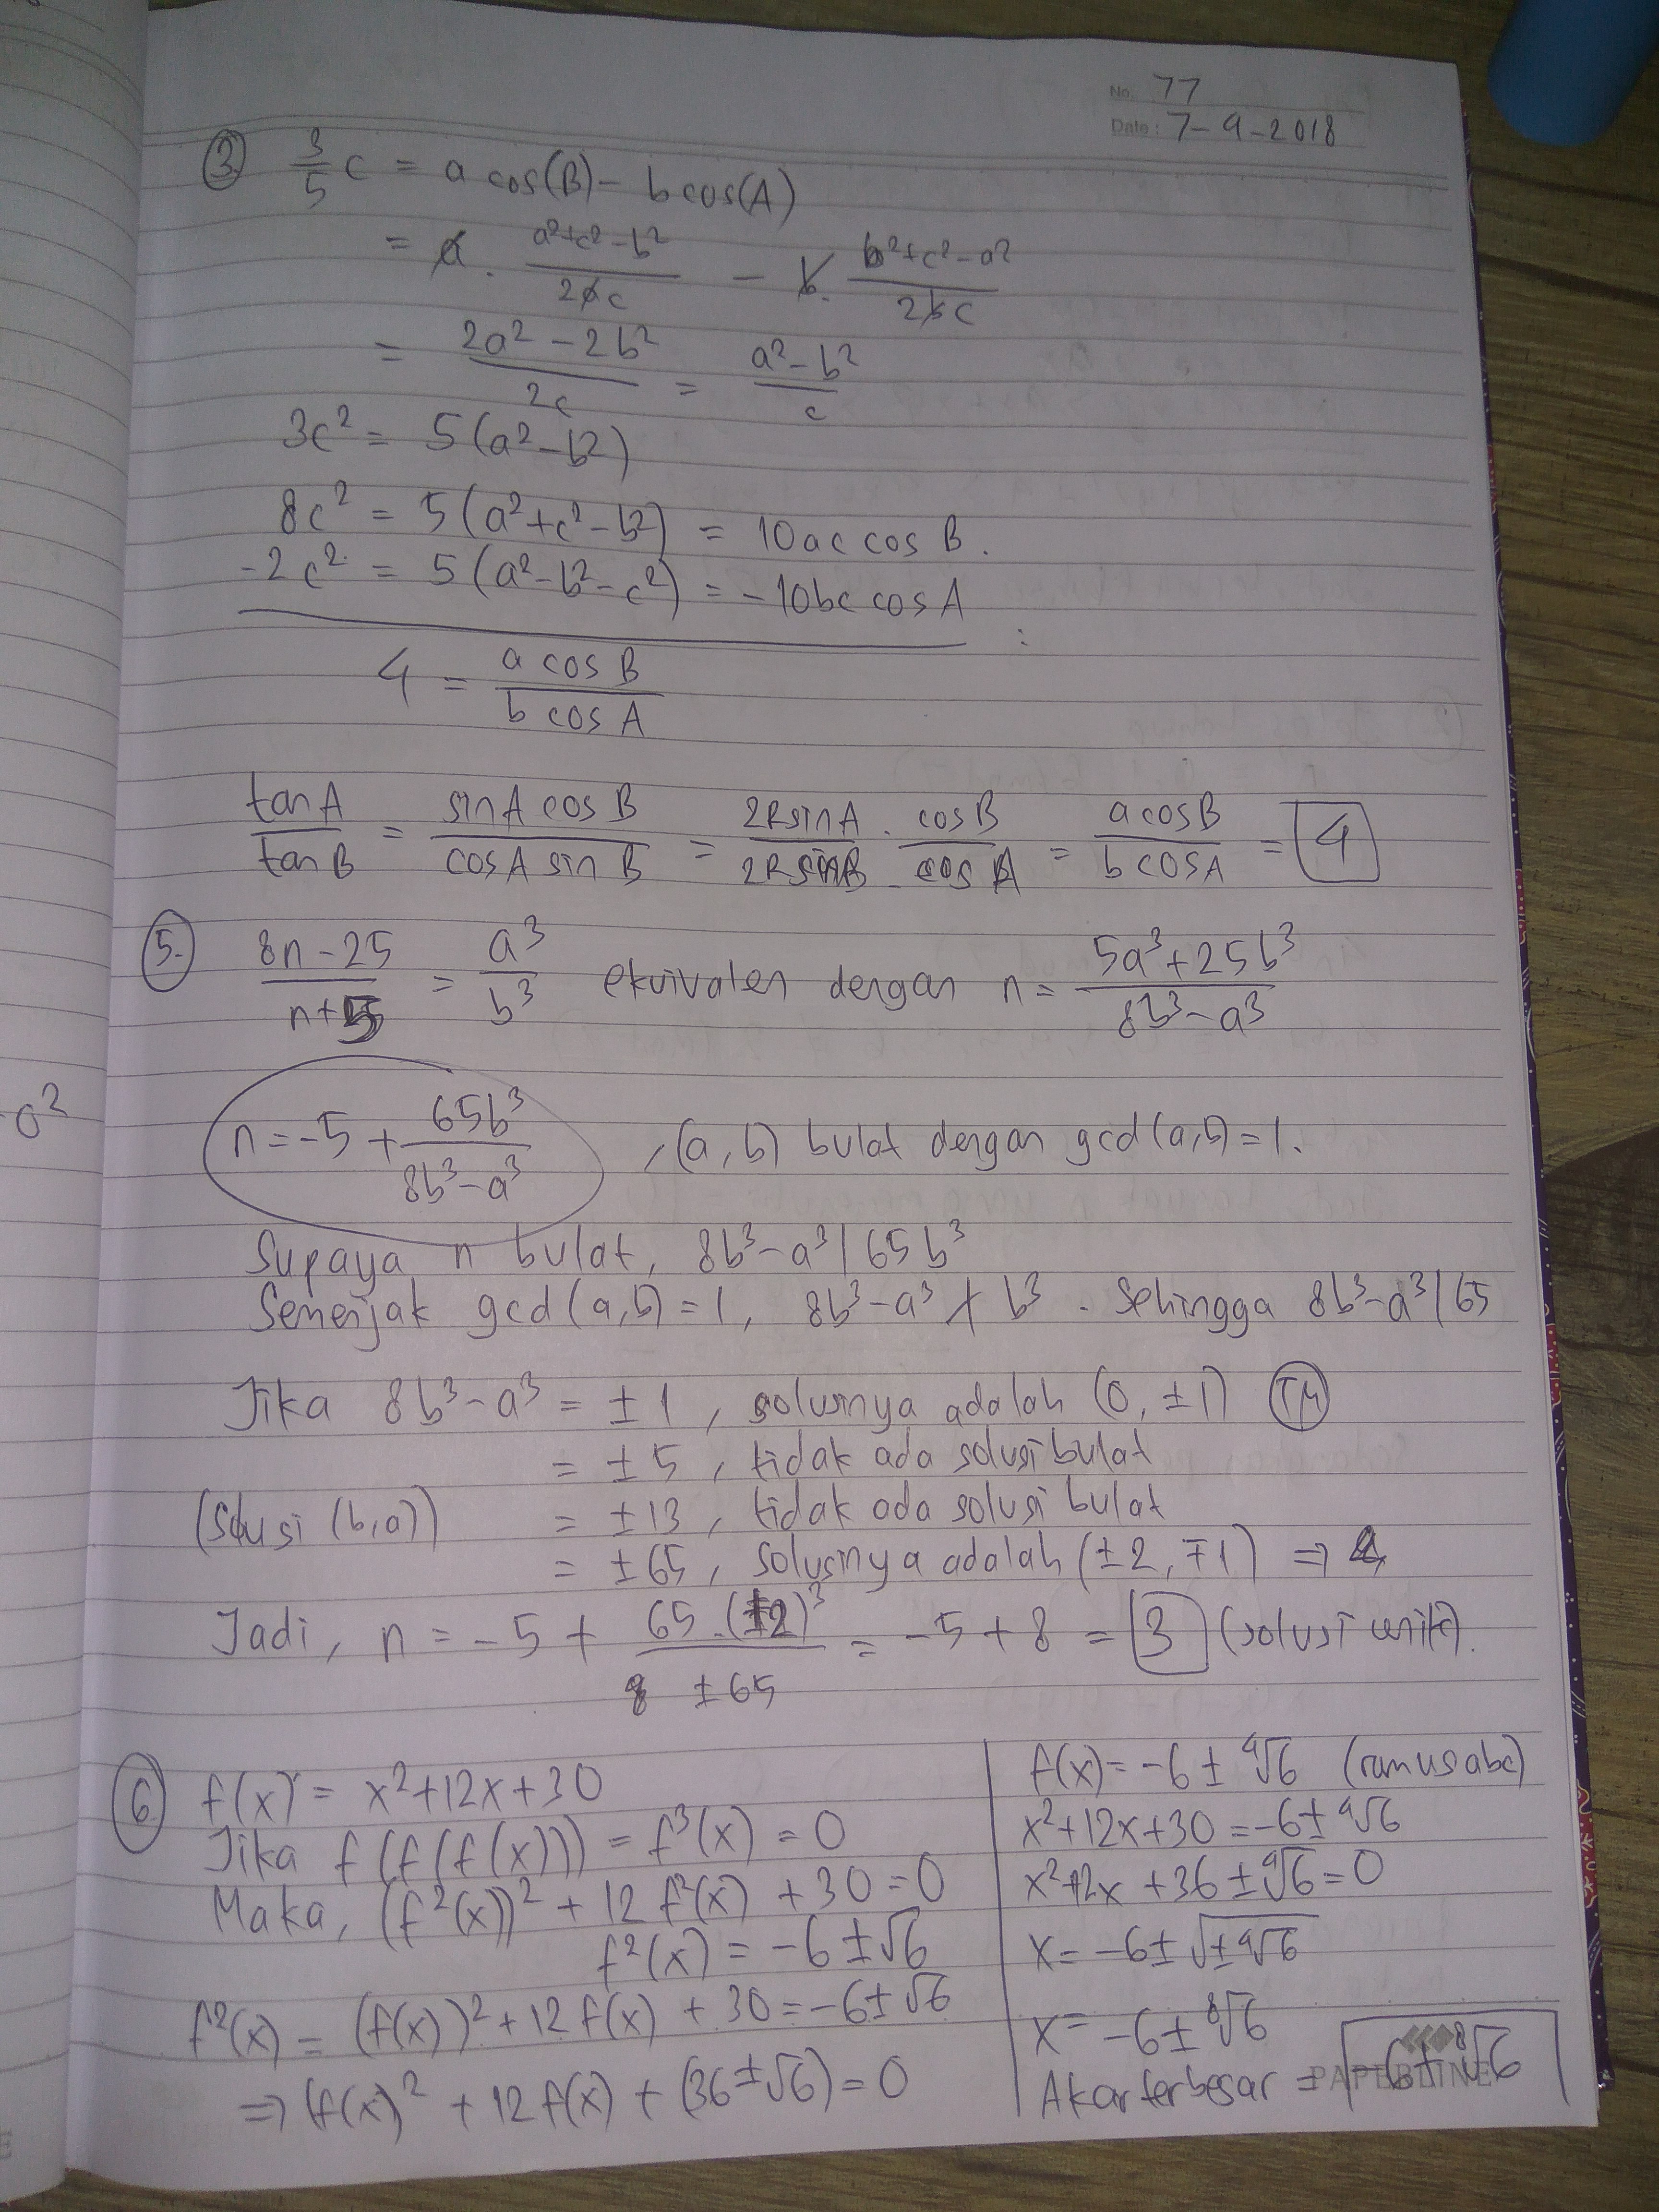 No. 77
Date : 7-9-2018
③ 3/5 c = a cos(B) - b cos(A)
= a . (a²+c²-b²)/(2ac) - b . (b²+c²-a²)/(2bc)
= (2a² - 2b²)/(2c) = (a² - b²)/c
3c² = 5(a²-b²)
8c² = 5(a²+c²-b²) = 10ac cos B.
-2c² = 5(a²-b²-c²) = -10bc cos A
:
4 = (a cos B)/(b cos A)
tan A/tan B = (sin A cos B)/(cos A sin B) = (2R sin A)/(2R sin B) . (cos B)/(cos A) = (a cos B)/(b cos A) = 4
⑤. (8n-25)/(n+5) = a³/b³ ekuivalen dengan n = (5a³+25b³)/(8b³-a³)
-a²
n = -5 + 65b³/(8b³-a³) , (a, b) bulat dengan gcd(a,b)=1.
Supaya n bulat, 8b³-a³ | 65b³
Semenjak gcd(a,b)=1, 8b³-a³ ∤ b³. Sehingga 8b³-a³ | 65
Jika 8b³-a³ = ±1, solusinya adalah (0, ±1) TM
= ±5, tidak ada solusi bulat
(Solusi (b,a)) = ±13, tidak ada solusi bulat
= ±65, solusinya adalah (±2, ∓1) ⇒
Jadi, n = -5 + (65.(±2)³)/(±65) = -5 + 8 = 3 (solusi unik).
⑥ f(x) = x²+12x+30
Jika f(f(f(x))) = f³(x) = 0
Maka, (f²(x))² + 12 f²(x) + 30 = 0
f²(x) = -6 ± √6
f²(x) = (f(x))² + 12 f(x) + 30 = -6 ± √6
⇒ (f(x))² + 12 f(x) + (36 ± √6) = 0
f(x) = -6 ± ⁴√6 (rumus abc)
x²+12x+30 = -6 ± ⁴√6
x²+12x+36 ± ⁴√6 = 0
x = -6 ± √(± ⁴√6)
x = -6 ± ⁸√6
Akar terbesar = -6 + ⁸√6
PAPERLINE